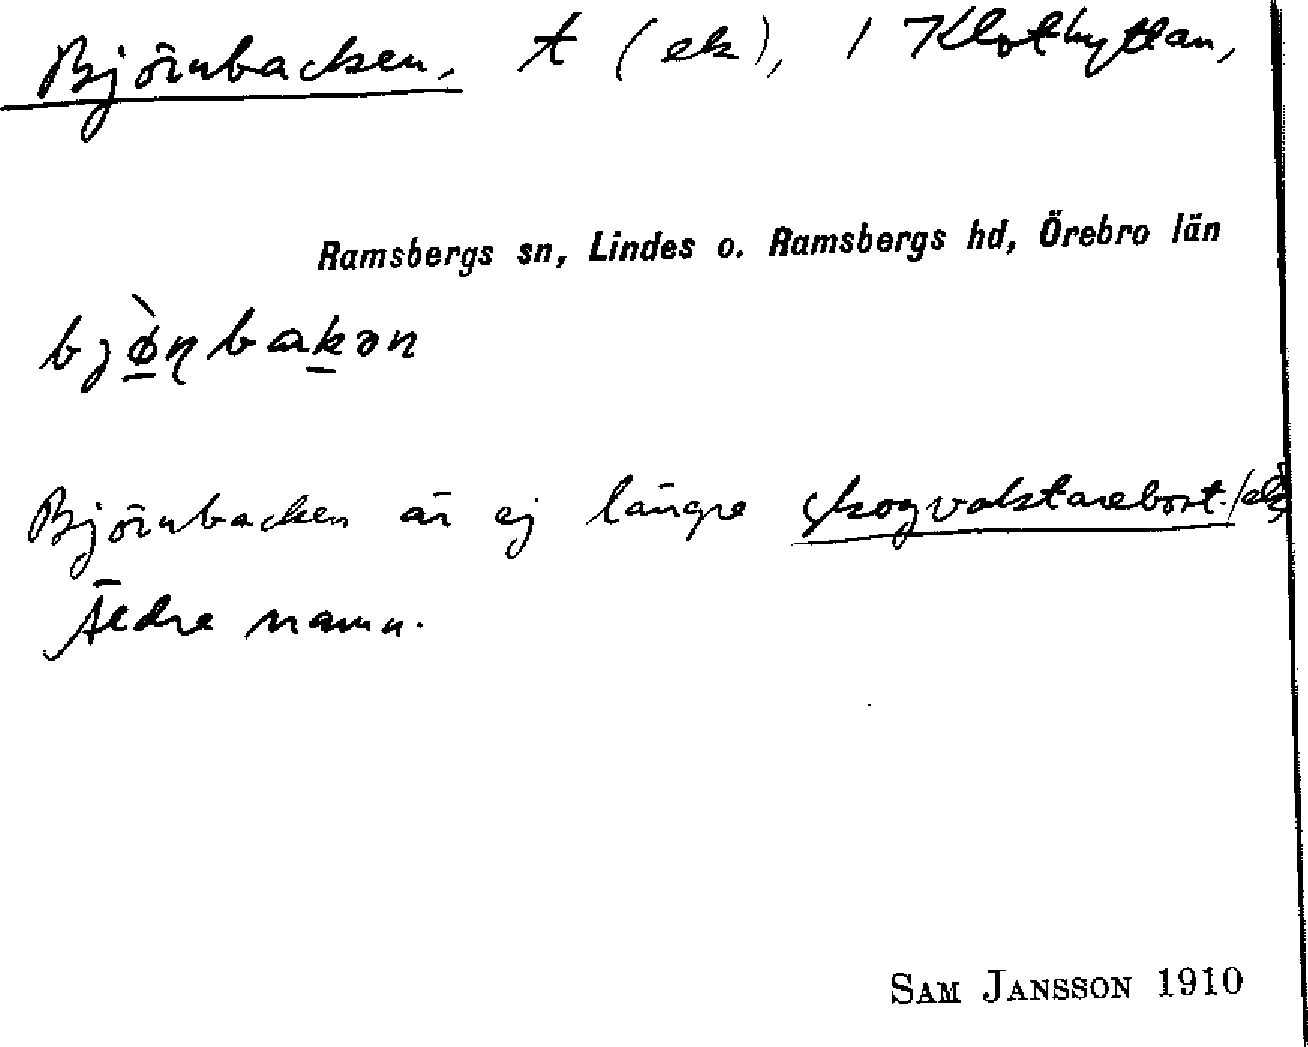 Björnbacken, t (ek), / Klothyttan,
Ramsbergs sn, Lindes o. Ramsbergs hd, Örebro län
bjø̀ɳbakən
Björnbacken är ej längre skogvaktarebost. /ek
Äldre namn.
SAM JANSSON 1910